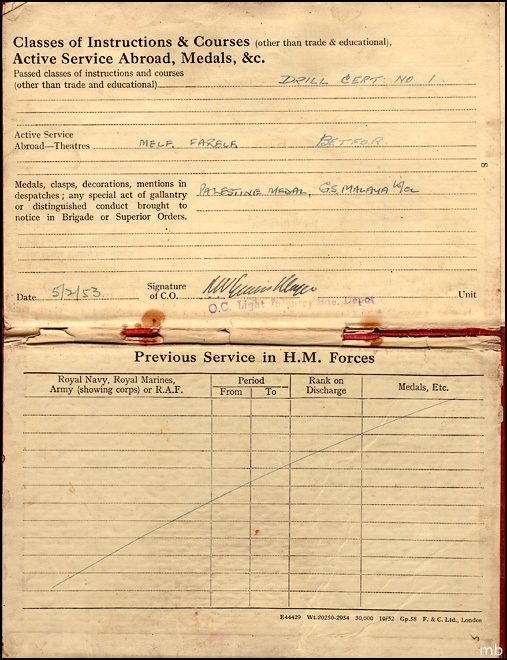 Classes of Instructions & Courses (other than trade & educational),
Active Service Abroad, Medals, &c.
Passed classes of instructions and courses
(other than trade and educational) DRILL CERT: NO 1.
Active Service
Abroad—Theatres MELF. FARELF. BETFOR
8
Medals, clasps, decorations, mentions in
despatches; any special act of gallantry
or distinguished conduct brought to
notice in Brigade or Superior Orders.
PALESTINE MEDAL, G.S. MALAYA
Date 5/2/53. Signature
of C.O. Unit
O.C. Light Infantry Bde. Depot
Previous Service in H.M. Forces
Royal Navy, Royal Marines,
Army (showing corps) or R.A.F.
Period
From To
Rank on
Discharge
Medals, Etc.
E44429 Wt.20250-2954 30,000 10/52 Gp.58 F. & C. Ltd., London
mb